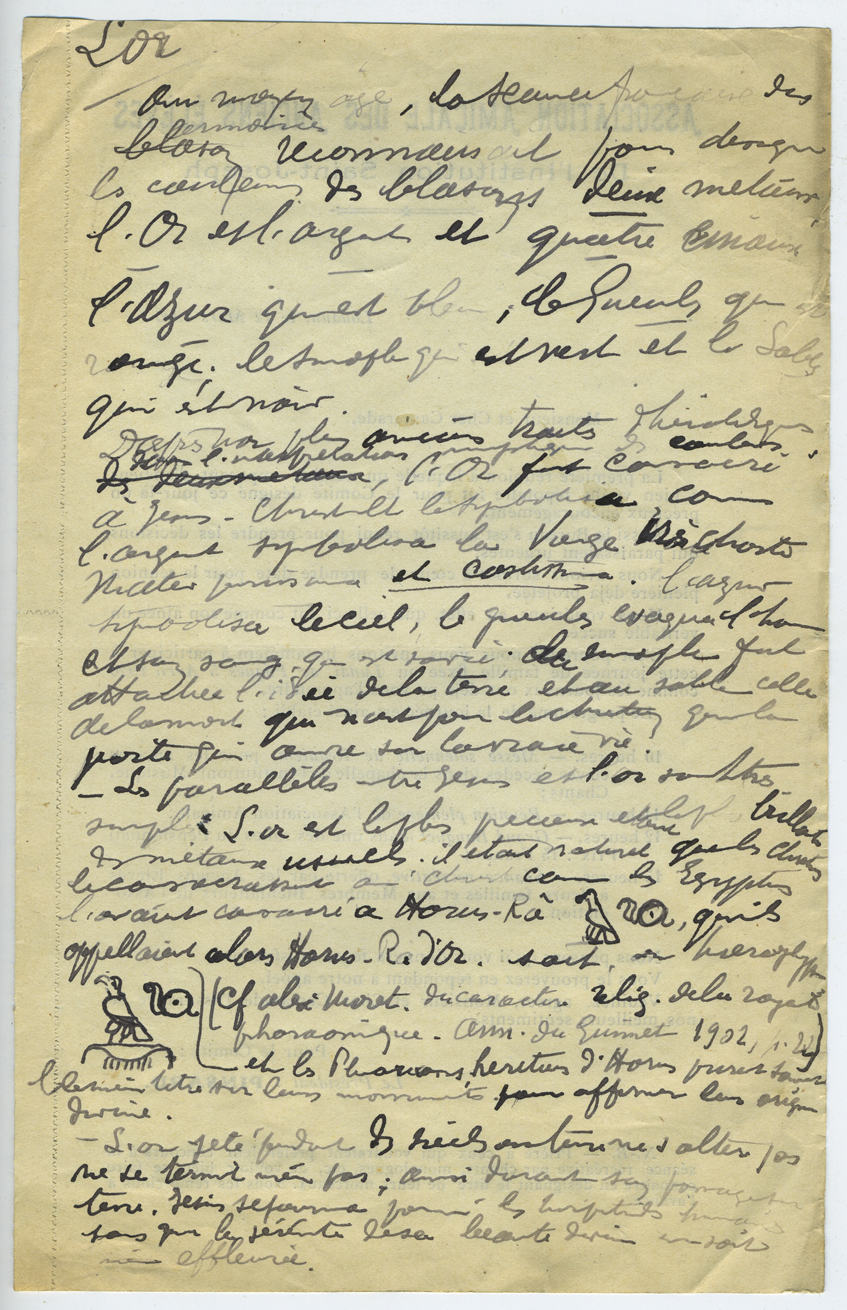 L'Or
Au moyen age, la science française des
armoiries
blason reconnaissait pour designer
les couleurs des blasons deux métaux,
l'Or et l'argent et quatre émaux
l'Azur qui est bleu, le Gueules qui est
rouge, le Sinople qui est vert et le Sable
qui est noir.
D'après nos plus anciens traités héraldiques
dans l'interprétation symbolique des couleurs,
des deux métaux, l'Or fut consacré
à Jesus-Christ et le symbolisa comme
l'argent symbolisa la Vierge
Mater purissima et castissima. l'azur
symbolisa le ciel, le gueules evoqua l'homme
et son sang, qui est sacré. Au sinople fut
attachée l'idée de la terre et au sable celle
de la mort qui n'est pour le chretien que la
porte qui ouvre sur la vraie vie.
— Les parallèles entre Jesus et l'or sont très
simples : L'or est le plus precieux et le plus brillant
des métaux usuels. il etait naturel que les chretiens
le consacrassent au Christ comme les Egyptiens
l'avaient consacré à Horus-Râ, qu'ils
appellaient alors Horus-R. d'Or. soit, en hieroglyphes
(Cf alex. Moret. du caractère relig. de la royauté
pharaonique. Ann. du Guimet 1902, p. 22)
et les Pharaons, heritiers d'Horus prirent
le même titre sur leurs monuments pour affirmer leur origine
divine.
— L'or jeté pendant des siècles en terre ne s'altère pas
ne se ternit même pas ; ainsi durant son passage sur
terre, Jesus sejourna parmi les
sans que la sérénité de sa beauté divine en soit
même effleurée.